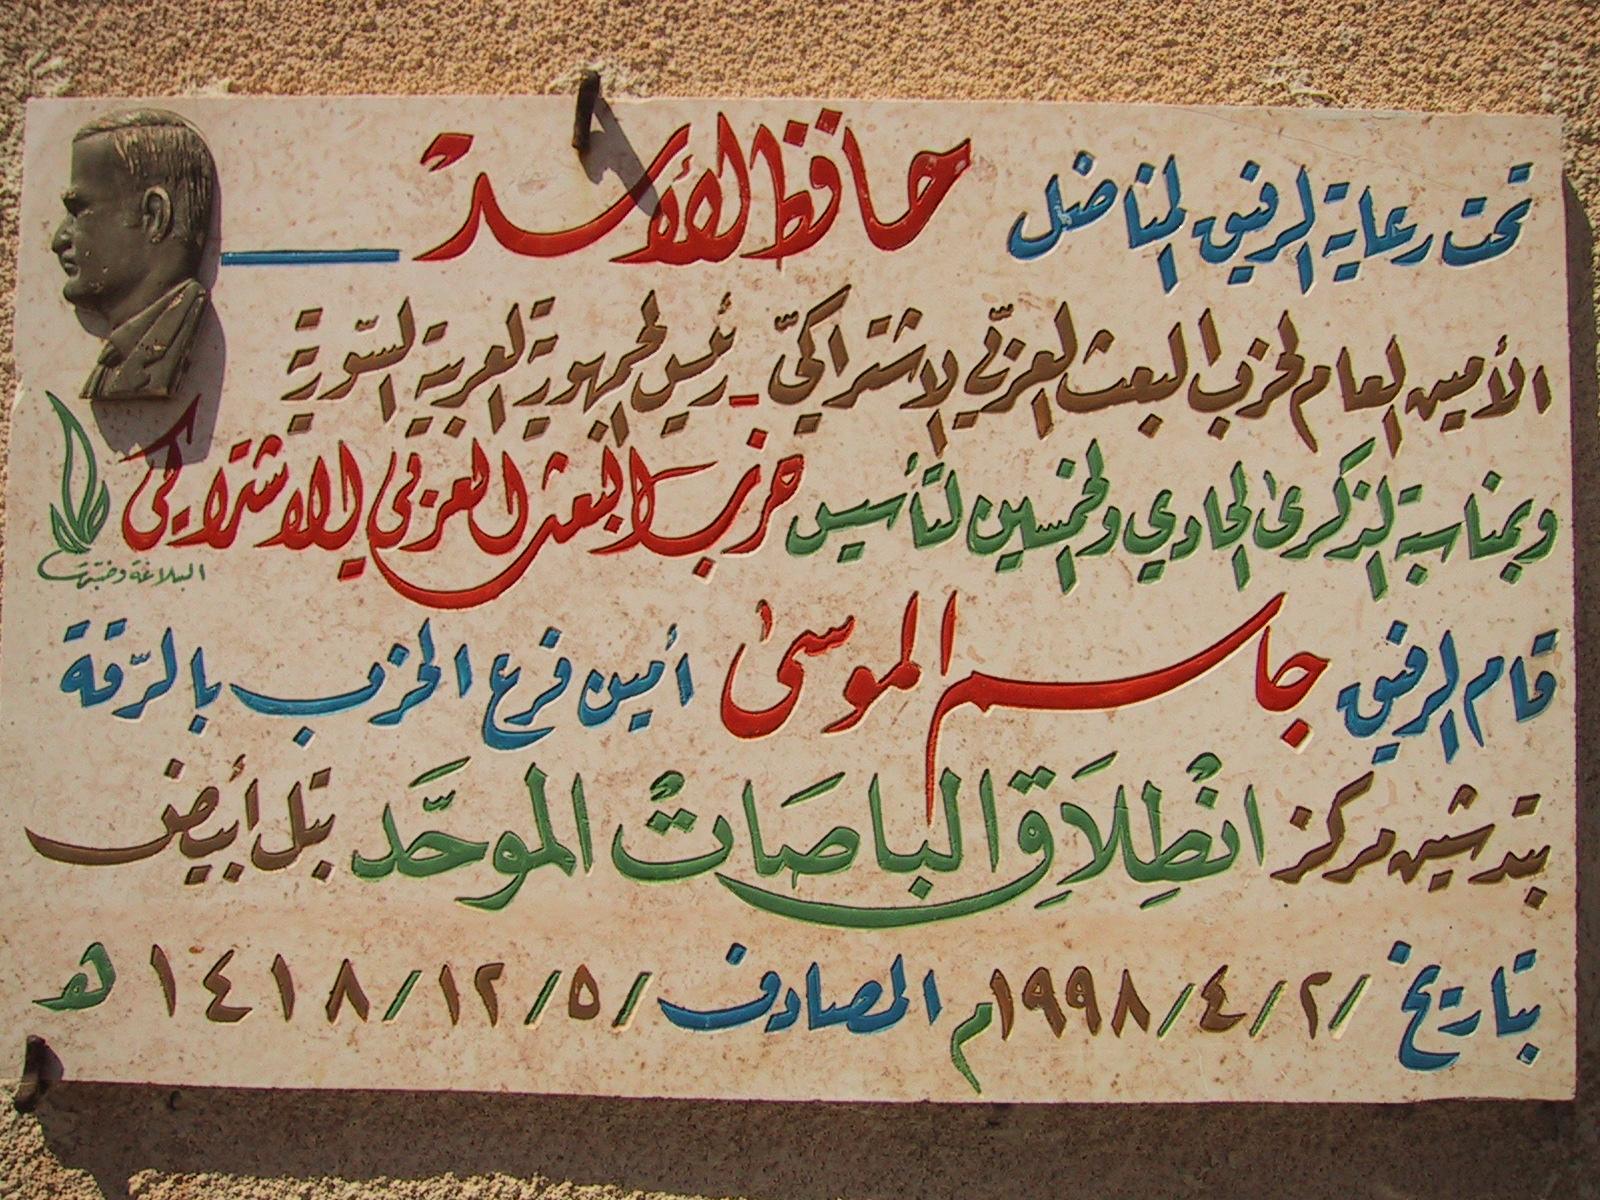 تحت رعاية الرفيق المناضل حافظ الأسد
الأمين العام لحزب البعث العربيّ الاشتراكيّ - رئيس الجمهورية العربية السّورية
وبمناسبة الذكرى الحادي والخمسين لتأسيس حزب البعث العربي الاشتراكي
قام الرفيق جاسم الموسى أمين فرع الحزب بالرّقة
بتدشين مركز انْطِلاَقِ الباصَاتْ الموحَّد بتل أبيض
بتاريخ ٢/٤/١٩٩٨م المصادف ٥/١٢/١٤١٨ هـ
البلاغة